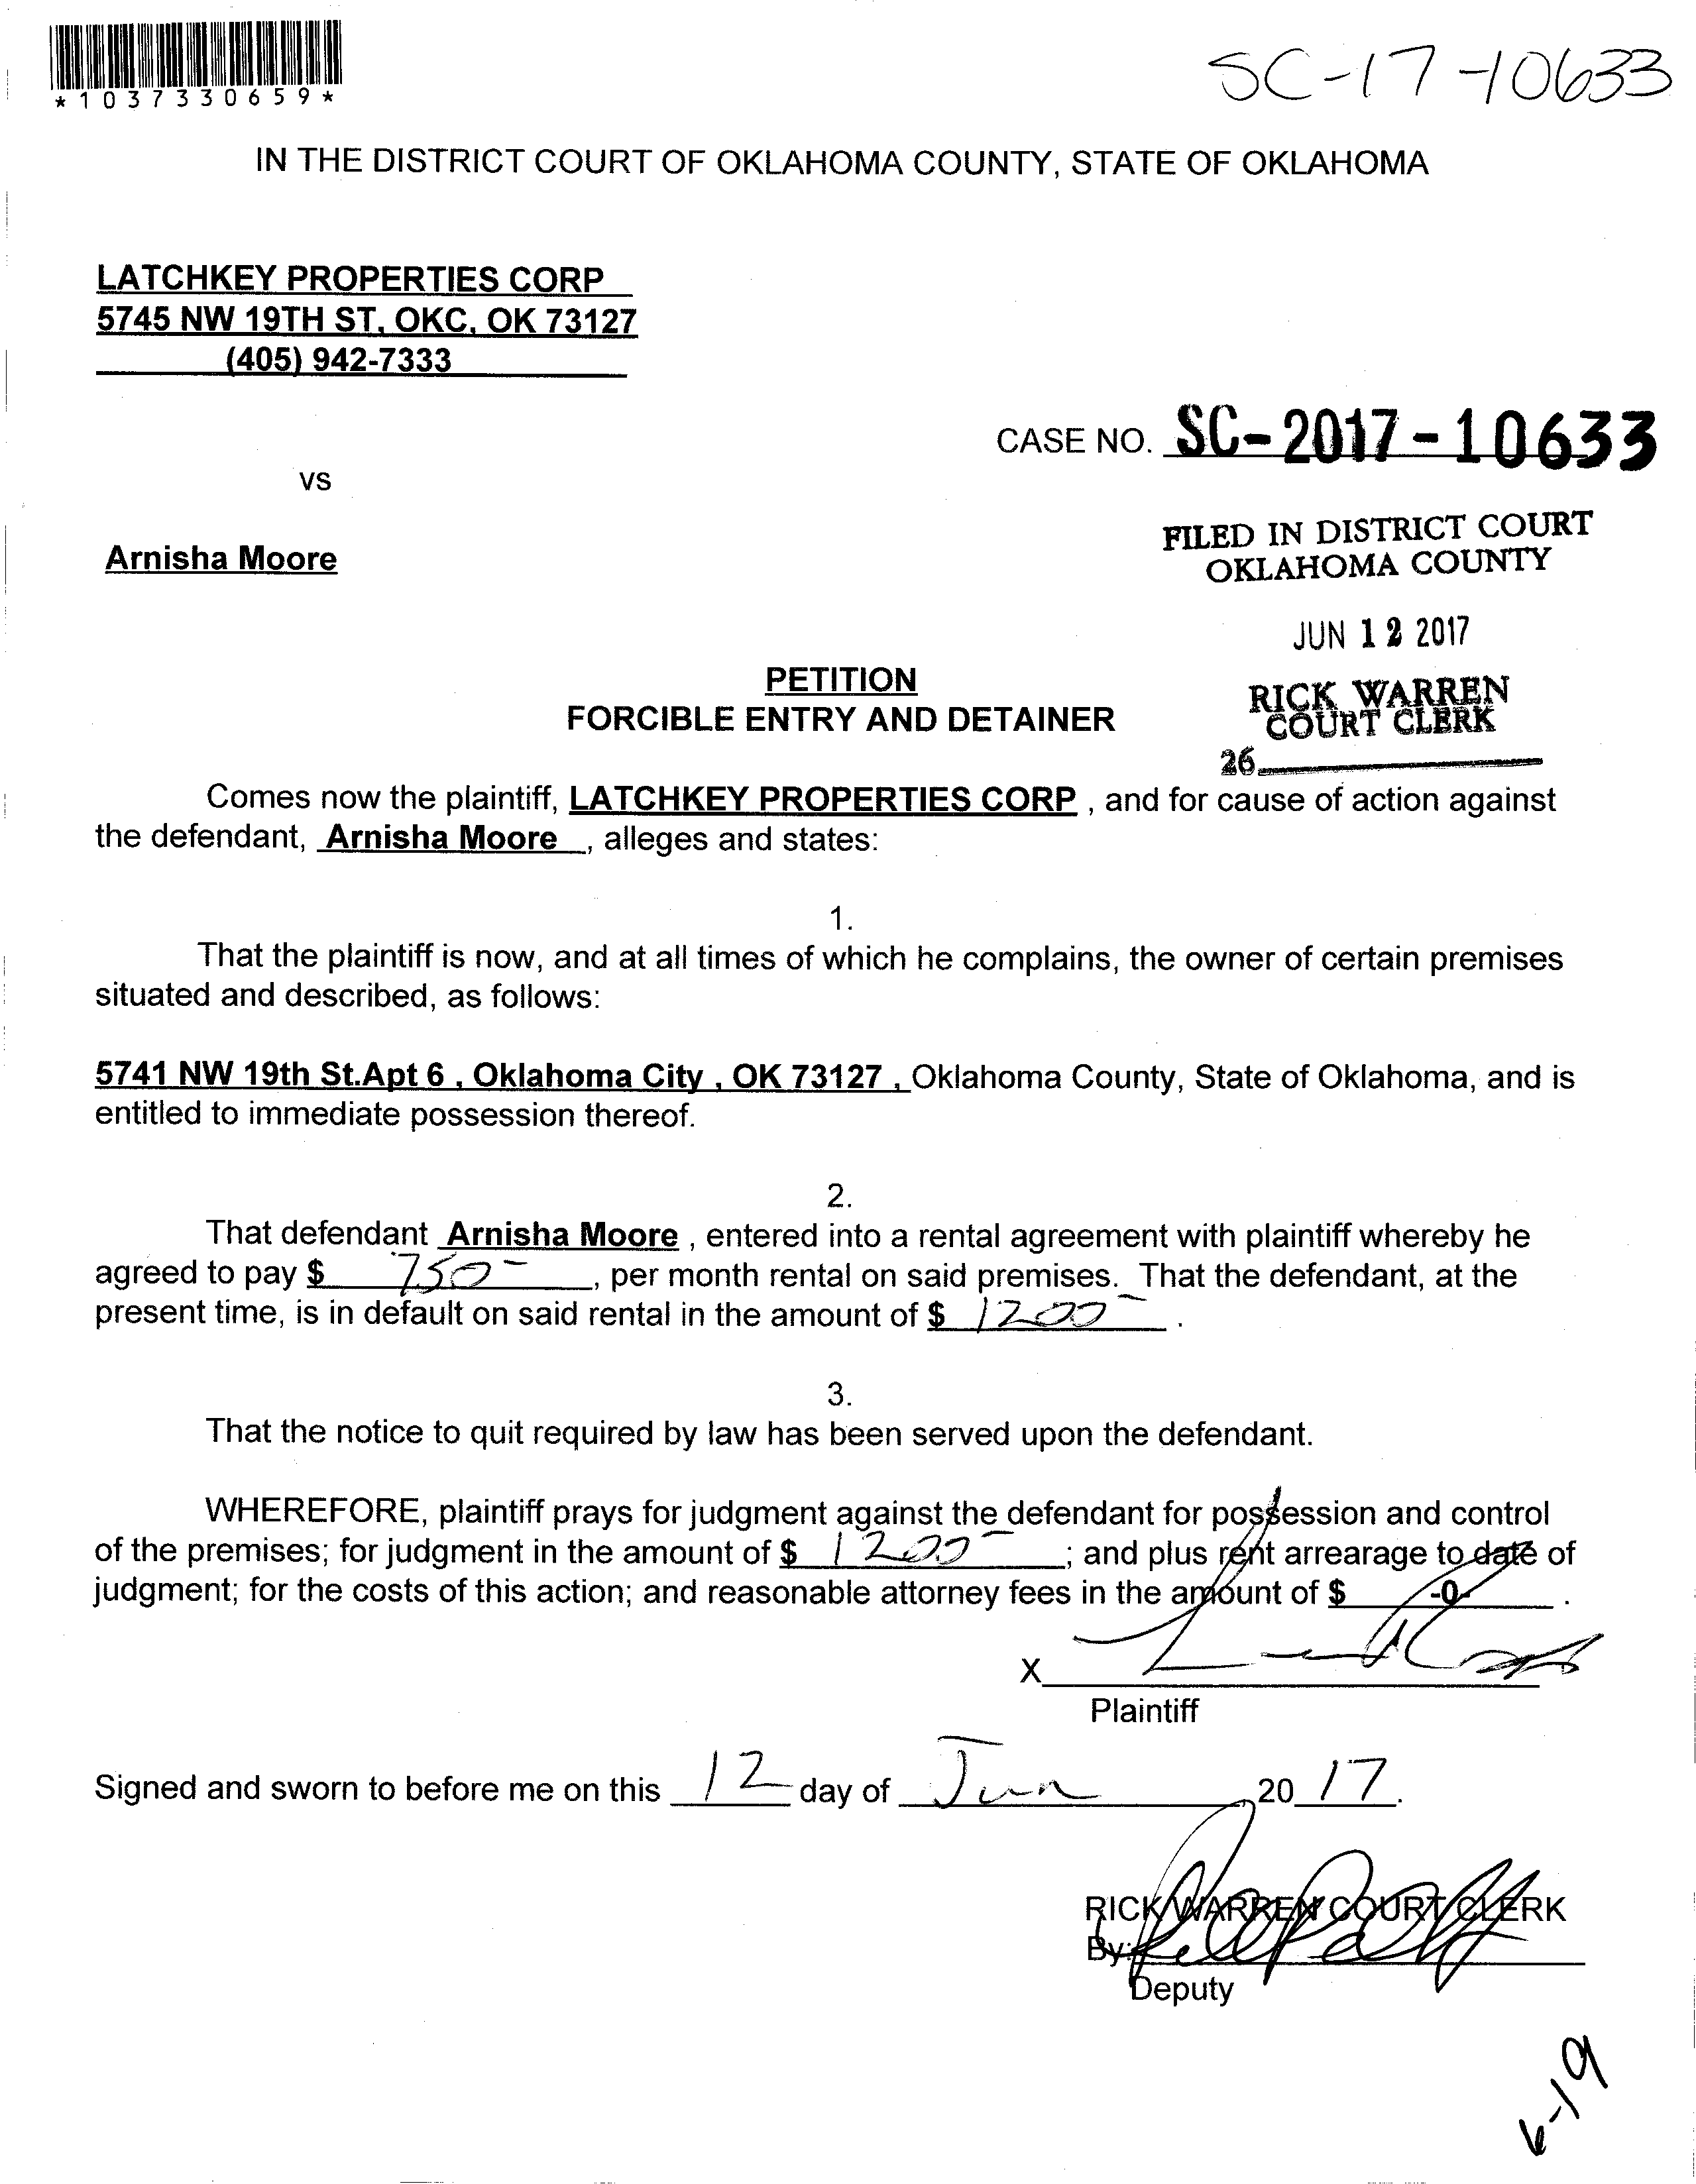 *1037330659*
SC-17-10633
IN THE DISTRICT COURT OF OKLAHOMA COUNTY, STATE OF OKLAHOMA
LATCHKEY PROPERTIES CORP
5745 NW 19TH ST, OKC, OK 73127
(405) 942-7333
CASE NO. SC-2017-10633
vs
FILED IN DISTRICT COURT
OKLAHOMA COUNTY
Arnisha Moore
JUN 12 2017
PETITION
FORCIBLE ENTRY AND DETAINER
RICK WARREN
COURT CLERK
26
Comes now the plaintiff, LATCHKEY PROPERTIES CORP , and for cause of action against
the defendant, Arnisha Moore , alleges and states:
1.
That the plaintiff is now, and at all times of which he complains, the owner of certain premises
situated and described, as follows:
5741 NW 19th St.Apt 6 , Oklahoma City , OK 73127 , Oklahoma County, State of Oklahoma, and is
entitled to immediate possession thereof.
2.
That defendant Arnisha Moore , entered into a rental agreement with plaintiff whereby he
agreed to pay $ 750- , per month rental on said premises. That the defendant, at the
present time, is in default on said rental in the amount of $ 1200- .
3.
That the notice to quit required by law has been served upon the defendant.
WHEREFORE, plaintiff prays for judgment against the defendant for possession and control
of the premises; for judgment in the amount of $ 1200- ; and plus rent arrearage to date of
judgment; for the costs of this action; and reasonable attorney fees in the amount of $ -0- .
X
Plaintiff
Signed and sworn to before me on this 12 day of Jun , 20 17.
RICK WARREN COURT CLERK
By:
Deputy
6-19